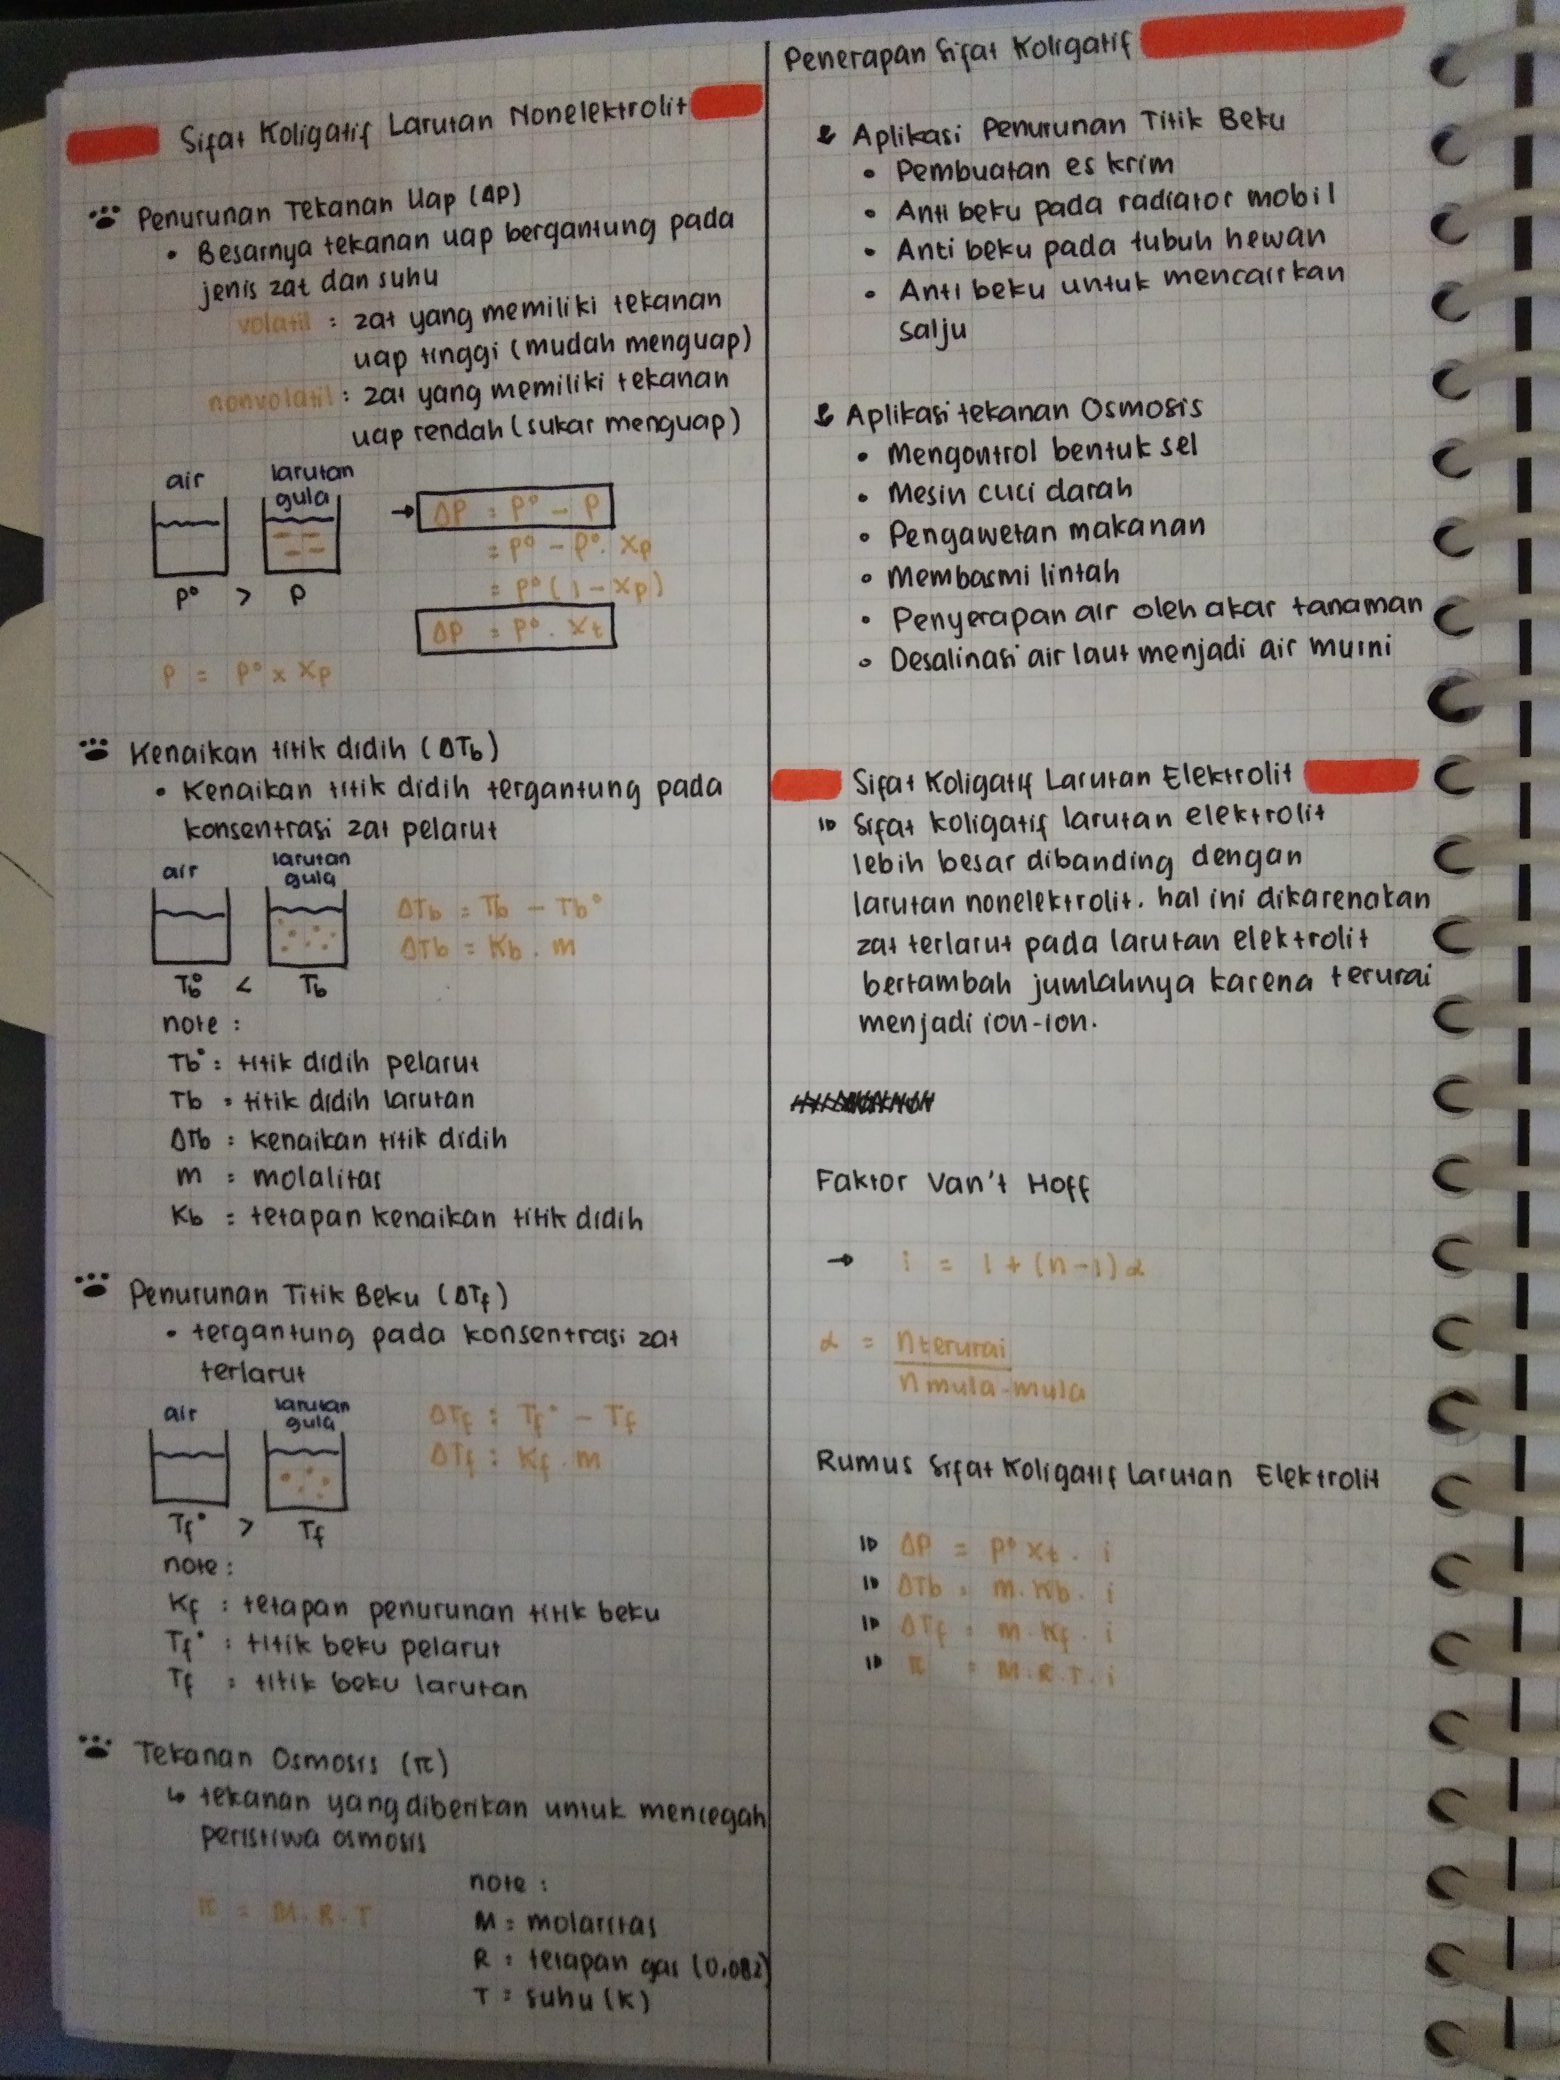 Sifat Koligatif Larutan Nonelektrolit
Penurunan Tekanan Uap (ΔP)
• Besarnya tekanan uap bergantung pada
jenis zat dan suhu
volatil : zat yang memiliki tekanan
uap tinggi (mudah menguap)
nonvolatil : zat yang memiliki tekanan
uap rendah (sukar menguap)
air
larutan
gula
P° > P
→ ΔP = P° - P
= P° - P°. Xp
= P° (1 - Xp)
ΔP = P° . Xt
P = P° x Xp
Kenaikan titik didih (ΔTb)
• Kenaikan titik didih tergantung pada
konsentrasi zat pelarut
air
larutan
gula
Tb° < Tb
ΔTb = Tb - Tb°
ΔTb = Kb . m
note :
Tb° : titik didih pelarut
Tb : titik didih larutan
ΔTb : kenaikan titik didih
m : molalitas
Kb : tetapan kenaikan titik didih
Penurunan Titik Beku (ΔTf)
• tergantung pada konsentrasi zat
terlarut
air
larutan
gula
Tf° > Tf
ΔTf : Tf° - Tf
ΔTf : Kf . m
note :
Kf : tetapan penurunan titik beku
Tf° : titik beku pelarut
Tf : titik beku larutan
Tekanan Osmosis (π)
↳ tekanan yang diberikan untuk mencegah
peristiwa osmosis
π = M . R . T
note :
M : molaritas
R : tetapan gas (0,082)
T : suhu (K)
Penerapan Sifat Koligatif
Aplikasi Penurunan Titik Beku
• Pembuatan es krim
• Anti beku pada radiator mobil
• Anti beku pada tubuh hewan
• Anti beku untuk mencairkan
salju
Aplikasi tekanan Osmosis
• Mengontrol bentuk sel
• Mesin cuci darah
• Pengawetan makanan
• Membasmi lintah
• Penyerapan air oleh akar tanaman
• Desalinasi air laut menjadi air murni
Sifat Koligatif Larutan Elektrolit
Sifat koligatif larutan elektrolit
lebih besar dibanding dengan
larutan nonelektrolit. hal ini dikarenakan
zat terlarut pada larutan elektrolit
bertambah jumlahnya karena terurai
menjadi ion-ion.
Faktor Van't Hoff
→ i = 1 + (n-1)α
α = n terurai
n mula-mula
Rumus Sifat Koligatif Larutan Elektrolit
ΔP = P° Xt . i
ΔTb = m . Kb . i
ΔTf = m . Kf . i
π = M . R . T . i